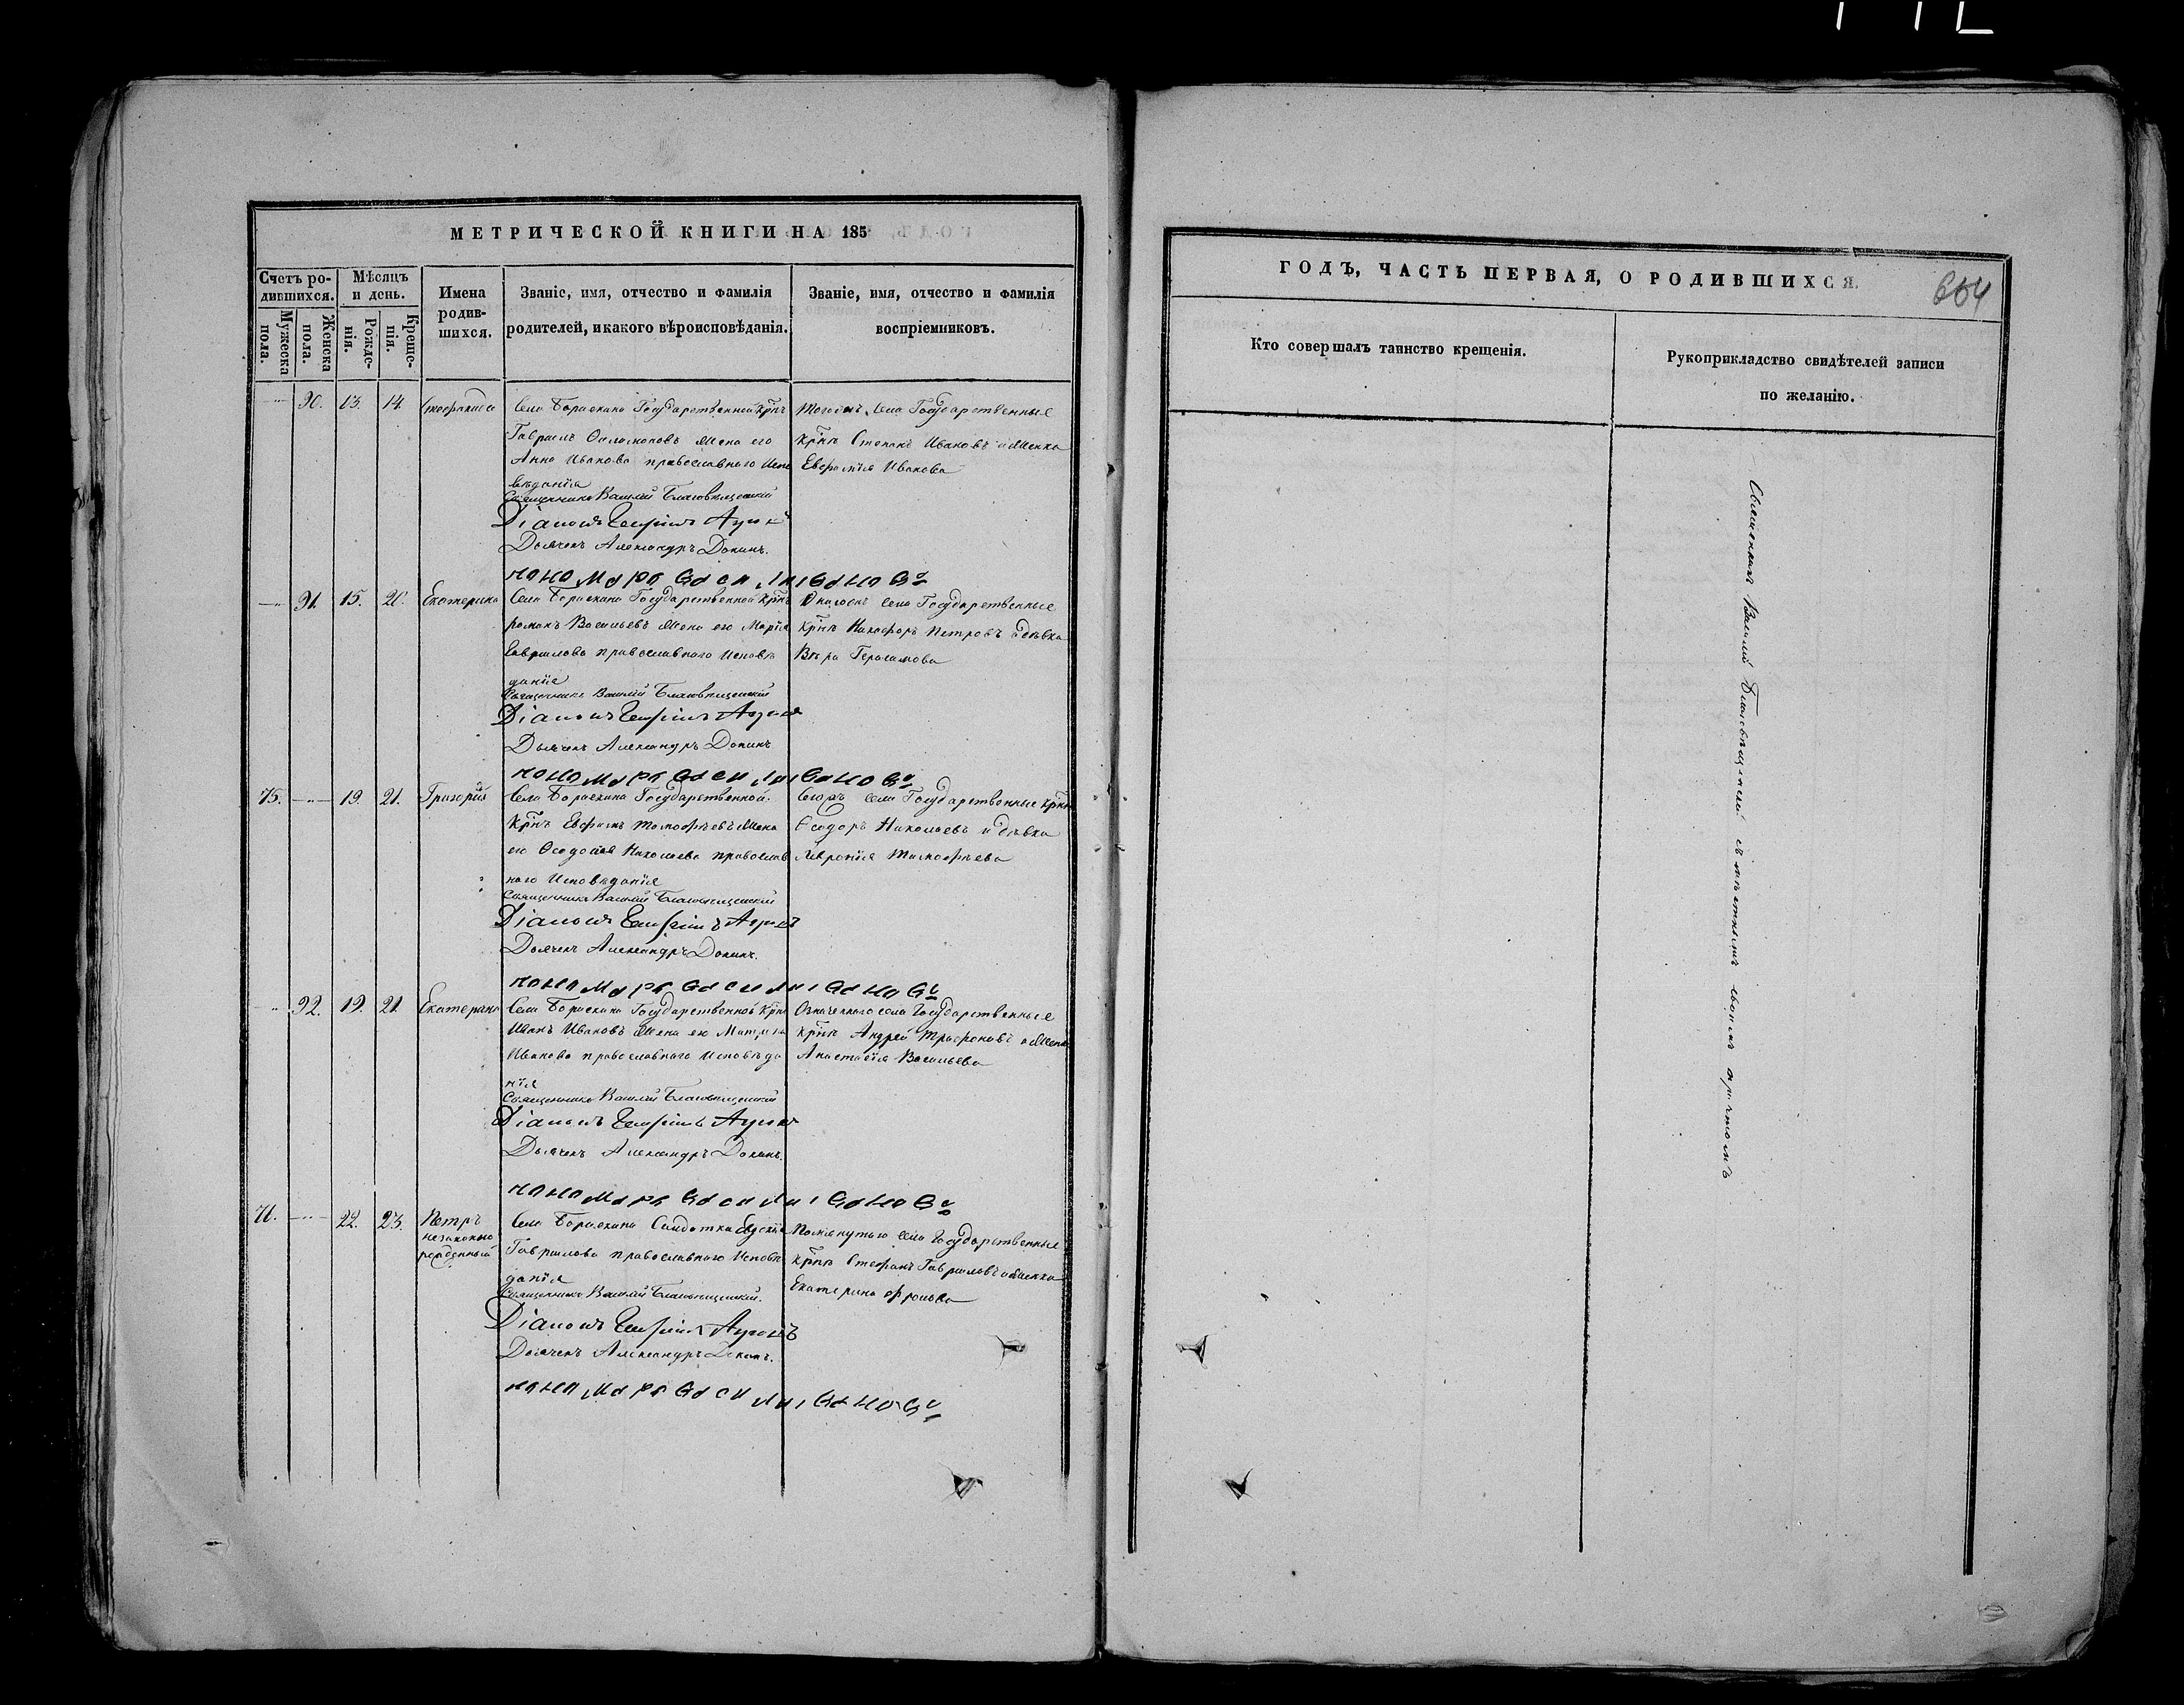 МЕТРИЧЕСКОЙ КНИГИ НА 185
Счетъ ро-
дившихся.
Мужеска
пола.
Женска
пола.
Мѣсяцъ
и день.
Рожде-
нія.
Креще-
нія.
Имена
родив-
шихся.
Званіе, имя, отчество и фамилія
родителей, и какого вѣроисповѣданія.
Званіе, имя, отчество и фамилія
воспріемниковъ.
90. 13. 14.
Села Государственной крнъ
Гаврилъ жена его
Анна Иванова православнаго испо
вѣданія
Священникъ Василій Благовѣщенскій
Діаконъ
Дьячекъ Александръ
пономарь василиі вановъ
села Государственные
крнѣ Степанъ Ивановъ и женка
Иванова
91. 15. 20. Екатерина
Села Государственной крнъ
романъ Васильевъ жена его Марія
Гаврилова православнаго исповѣ
данія
Священникъ Василій Благовѣщенскій
Діаконъ
Дьячекъ Александръ
пономарь василиі ванова
села Государственные
крнѣ Никифоръ Петровъ и дѣвка
Вѣра Герасимова
75. 19. 21. Григорій
Села Государственной
крнъ Евфимъ Тимофѣевъ жена
его Ѳедосія Николаева православ
наго исповѣданія
Священникъ Василій Благовѣщенскій
Діаконъ
Дьячекъ Александръ
пономарь василиі ванова
села Государственные крнѣ
Ѳедоръ Николаевъ и дѣвка
Тимофѣева
92. 19. 21. Екатерина
Села Государственной крнъ
Иванъ Ивановъ жена его Матрена
Иванова православнаго исповѣда
нія
Священникъ Василій Благовѣщенскій
Діаконъ
Дьячекъ Александръ
пономарь василиі ванова
Означеннаго села Государственные
крнѣ Андрей Трофимовъ и женка
Анастасія Васильева
76. 22. 23. Петръ
незаконно
рожденный
Села Солдатка
Гаврилова православнаго исповѣ
данія
Священникъ Василій Благовѣщенскій.
Діаконъ
Дьячекъ Александръ
пономарь василиі ванова
Помянутаго села Государственные
крнѣ Стефанъ Гавриловъ и женка
Екатерина Фролова
ГОДЪ, ЧАСТЬ ПЕРВАЯ, О РОДИВШИХСЯ.
664
Кто совершалъ таинство крещенія.
Рукоприкладство свидѣтелей записи
по желанію.
Священникъ Василій Благовѣщенскій съ своимъ причтомъ